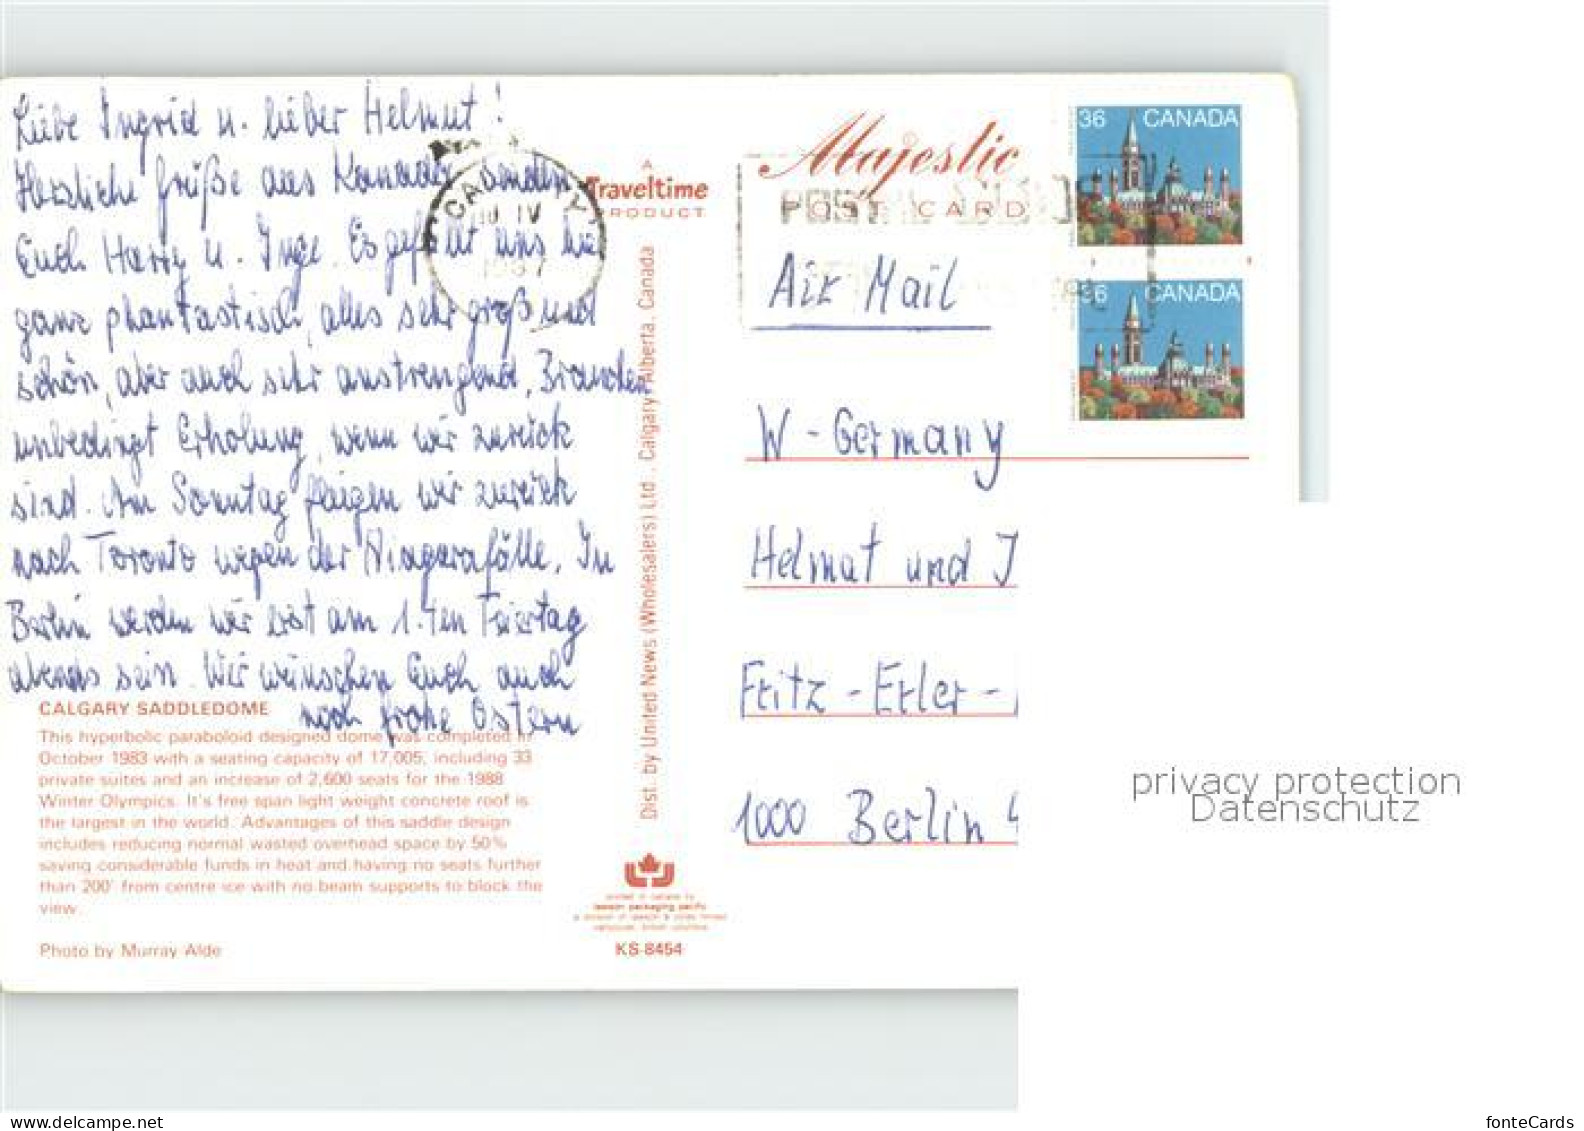 Liebe Ingrid u. lieber Helmut!
Herzliche Grüße aus Kanada senden
Euch Harry u. Inge. Es gefällt uns hier
ganz phantastisch, alles sehr groß und
schön, aber auch sehr anstrengend. Brauchen
unbedingt Erholung, wenn wir zurück
sind. Am Sonntag fliegen wir zurück
nach Toronto wegen der Niagarafälle. In
Berlin werden wir erst am 1. ten Feiertag
abends sein. Wir wünschen Euch auch
noch frohe Ostern
CALGARY SADDLEDOME
This hyperbolic paraboloid designed dome was completed in
October 1983 with a seating capacity of 17,005, including 33
private suites and an increase of 2,600 seats for the 1988
Winter Olympics. It's free span light weight concrete roof is
the largest in the world. Advantages of this saddle design
includes reducing normal wasted overhead space by 50%
saving considerable funds in heat and having no seats further
than 200' from centre ice with no beam supports to block the
view.
Photo by Murray Alde
CALGARY
IV
1987
A
Traveltime
PRODUCT
Dist. by United News (Wholesalers) Ltd., Calgary, Alberta, Canada
printed in canada by
lawson packaging pacific
a division of lawson & jones limited
vancouver, british columbia
KS-8454
Majestic
POST CARD
36 CANADA
36 CANADA
Air Mail
W-Germany
Helmut und I
Fritz-Erler-
1000 Berlin 4
privacy protection
Datenschutz
www.delcampe.net
fonteCards